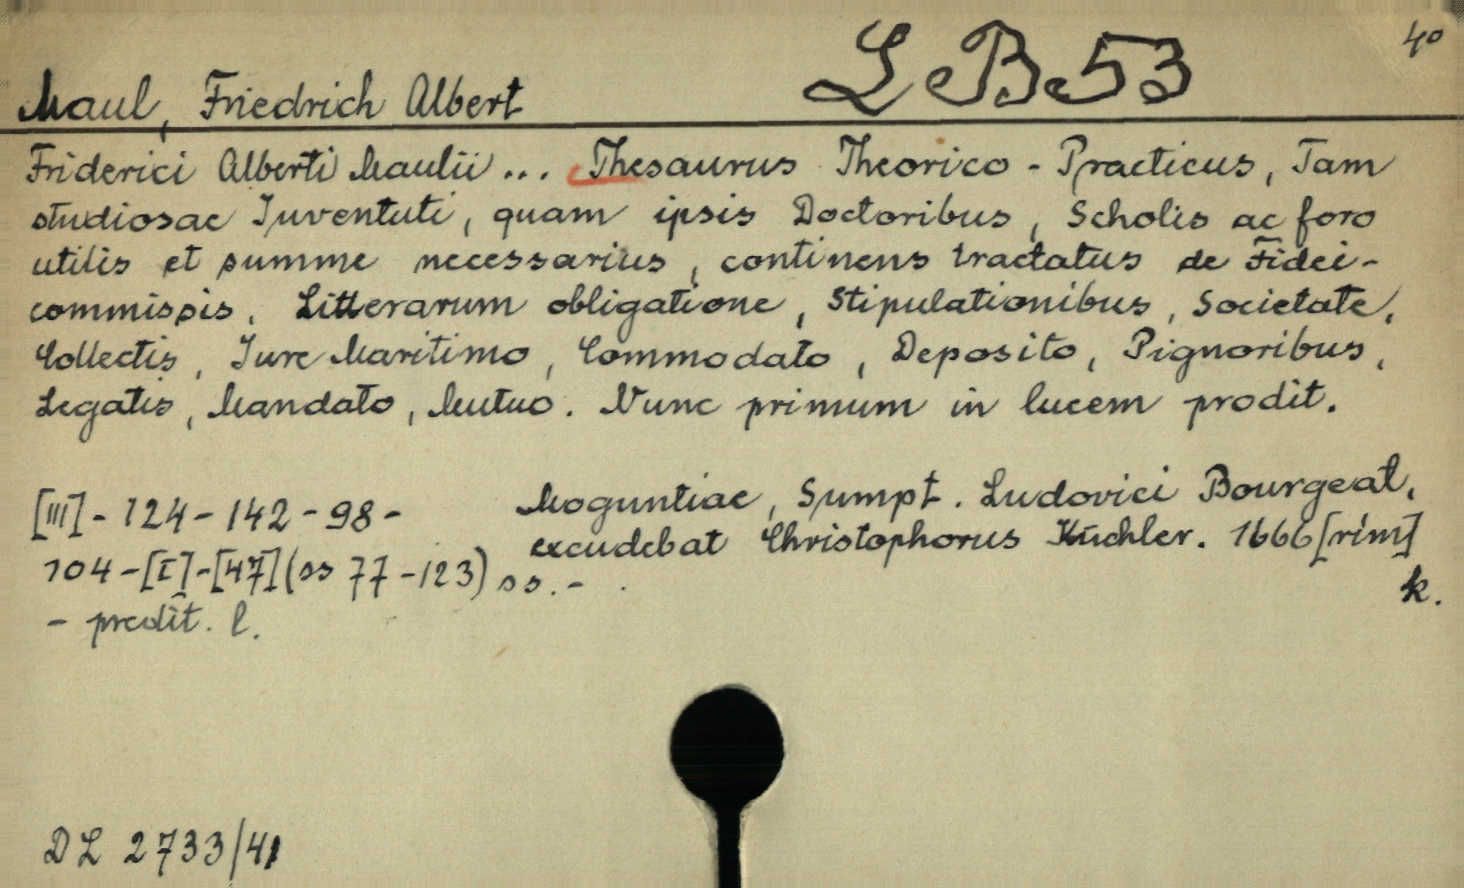 LeB53
4°
Maul, Friedrich Albert
Friderici Alberti Maulii ... Thesaurus Theorico - Practicus, Tam
studiosae Iuventuti, quam ipsis Doctoribus, Scholis ac foro
utilis et summe necessarius, continens tractatus de Fidei-
commissis, Litterarum obligatione, Stipulationibus, Societate,
Collectis, Iure Maritimo, Commodato, Deposito, Pignoribus,
Legatis, Mandato, Mutuo. Nunc primum in lucem prodit.
Moguntiae, Sumpt. Ludovici Bourgeat,
excudebat Christophorus Küchler. 1666 [rim]
k.
[III] - 124 - 142 - 98 -
104 - [I] - [47] (ss 77 - 123) ss. -
- predit. l.
DL 2733/41